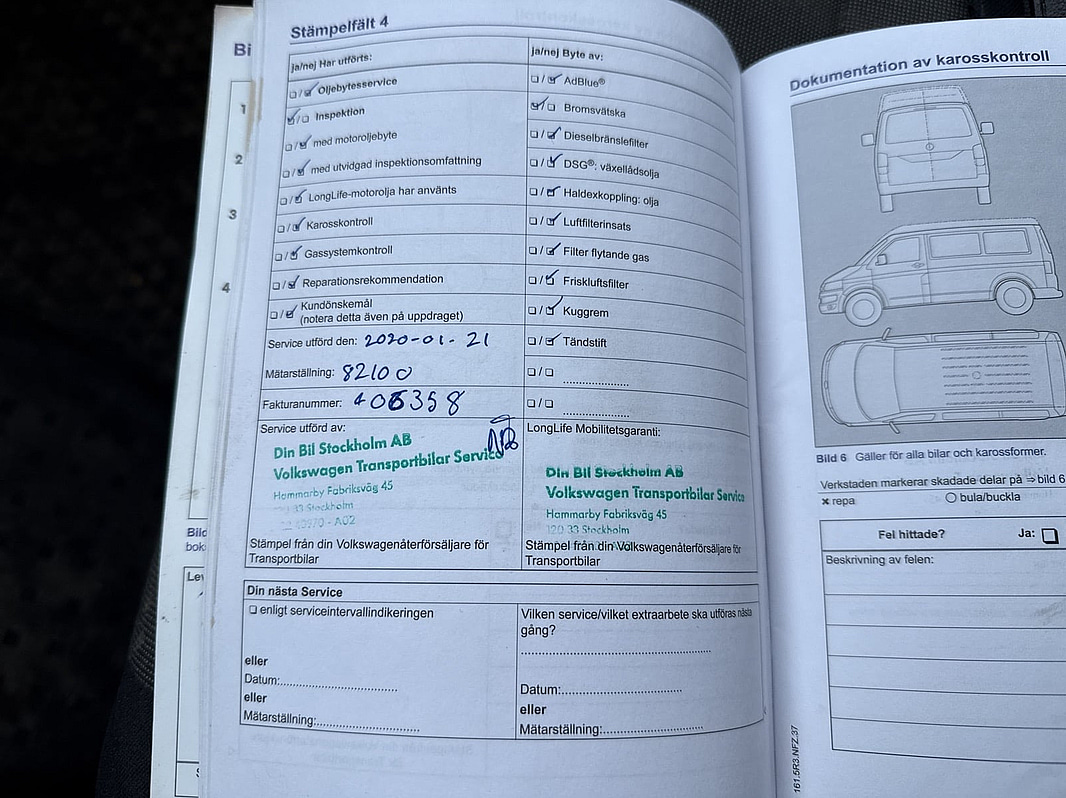 Bi
1
2
3
4
Bild
bok
Lev
Stämpelfält 4
ja/nej Har utförts:
☐/☑ Oljebytesservice
☑/☐ Inspektion
☐/☑ med motoroljebyte
☐/☑ med utvidgad inspektionsomfattning
☐/☑ LongLife-motorolja har använts
☐/☑ Karosskontroll
☐/☑ Gassystemkontroll
☐/☑ Reparationsrekommendation
☐/☑ Kundönskemål
(notera detta även på uppdraget)
Service utförd den: 2020-01-21
Mätarställning: 82100
Fakturanummer: 406358
Service utförd av:
Din Bil Stockholm AB
Volkswagen Transportbilar Service
Hammarby Fabriksväg 45
33 Stockholm
- A02
Stämpel från din Volkswagenåterförsäljare för
Transportbilar
ja/nej Byte av:
☐/☑ AdBlue®
☑/☐ Bromsvätska
☐/☑ Dieselbränslefilter
☐/☑ DSG®: växellådsolja
☐/☑ Haldexkoppling: olja
☐/☑ Luftfilterinsats
☐/☑ Filter flytande gas
☐/☑ Friskluftsfilter
☐/☑ Kuggrem
☐/☑ Tändstift
☐/☐ ....................
☐/☐ ....................
LongLife Mobilitetsgaranti:
Din Bil Stockholm AB
Volkswagen Transportbilar Service
Hammarby Fabriksväg 45
120 33 Stockholm
Stämpel från din Volkswagenåterförsäljare för
Transportbilar
Din nästa Service
☐ enligt serviceintervallindikeringen
eller
Datum:..............................
eller
Mätarställning:..........................
Vilken service/vilket extraarbete ska utföras nästa
gång?
..................................................
Datum:..............................
eller
Mätarställning:.........................
Dokumentation av karosskontroll
Bild 6 Gäller för alla bilar och karossformer.
Verkstaden markerar skadade delar på ⇒ bild 6
× repa ○ bula/buckla
Fel hittade? Ja: ☐
Beskrivning av felen:
161.5R3.NFZ.37